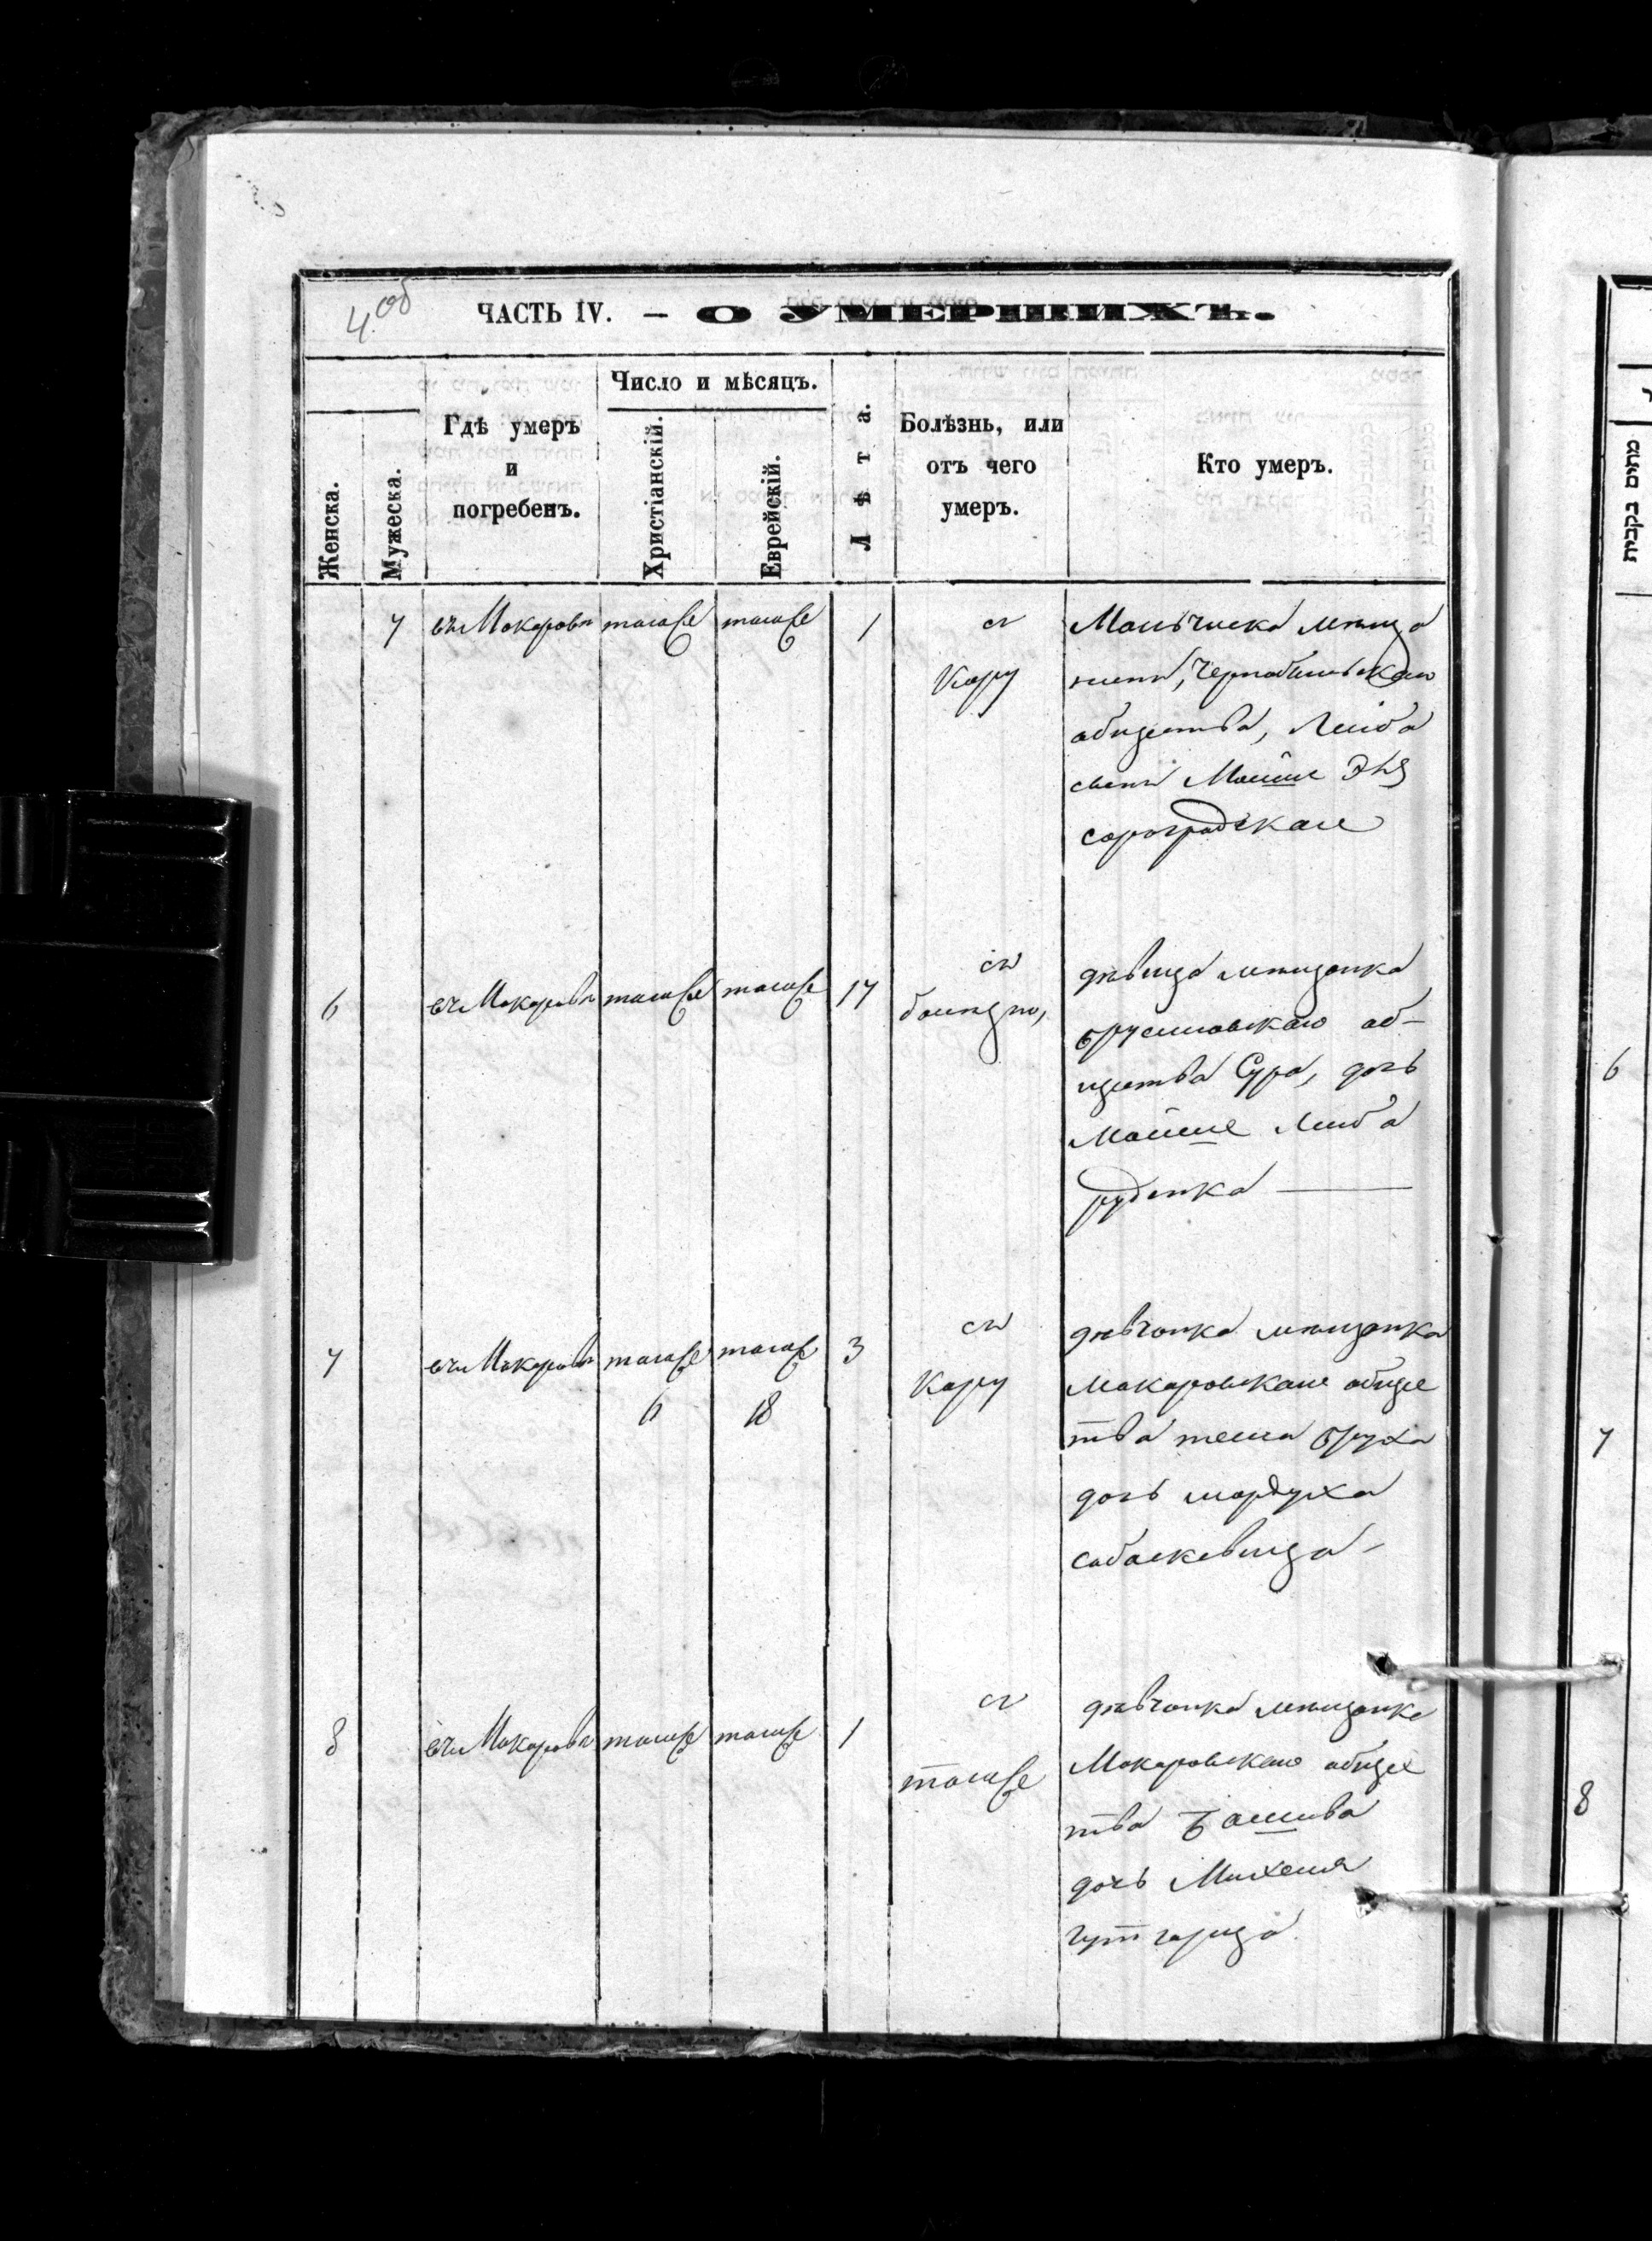 4 об
ЧАСТЬ IV. — О УМЕРШИХЪ.
Женска.
Мужеска.
Гдѣ умеръ
и
погребенъ.
Число и мѣсяцъ.
Христіанскій.
Еврейскій.
Лѣта.
Болѣзнь, или
отъ чего
умеръ.
Кто умеръ.
7 въ Макаровѣ тогоже тогоже 1
отъ
Кору
Мальчикъ мѣща
нинъ, Чернобильскаго
общества, Лейба
сынъ Мойше
6 въ Макаровѣ тогоже тогоже 17
отъ
дѣвица мѣщанка
Брусиловскаго об-
щества Сура, дочь
Мойше Лейба
Руденка —
7 въ Макаровѣ тогоже тогоже 3
6 18
отъ
Кору
дѣвчонка мѣщанка
Макаровскаго общес
тва Бруха
дочь Мордуха
8 въ Макаровѣ тогоже тогоже 1
отъ
тогоже
дѣвчонка мѣщанка
Макаровскаго общес
тва Башива
дочь Михеля
מתים נקבות
6
7
8